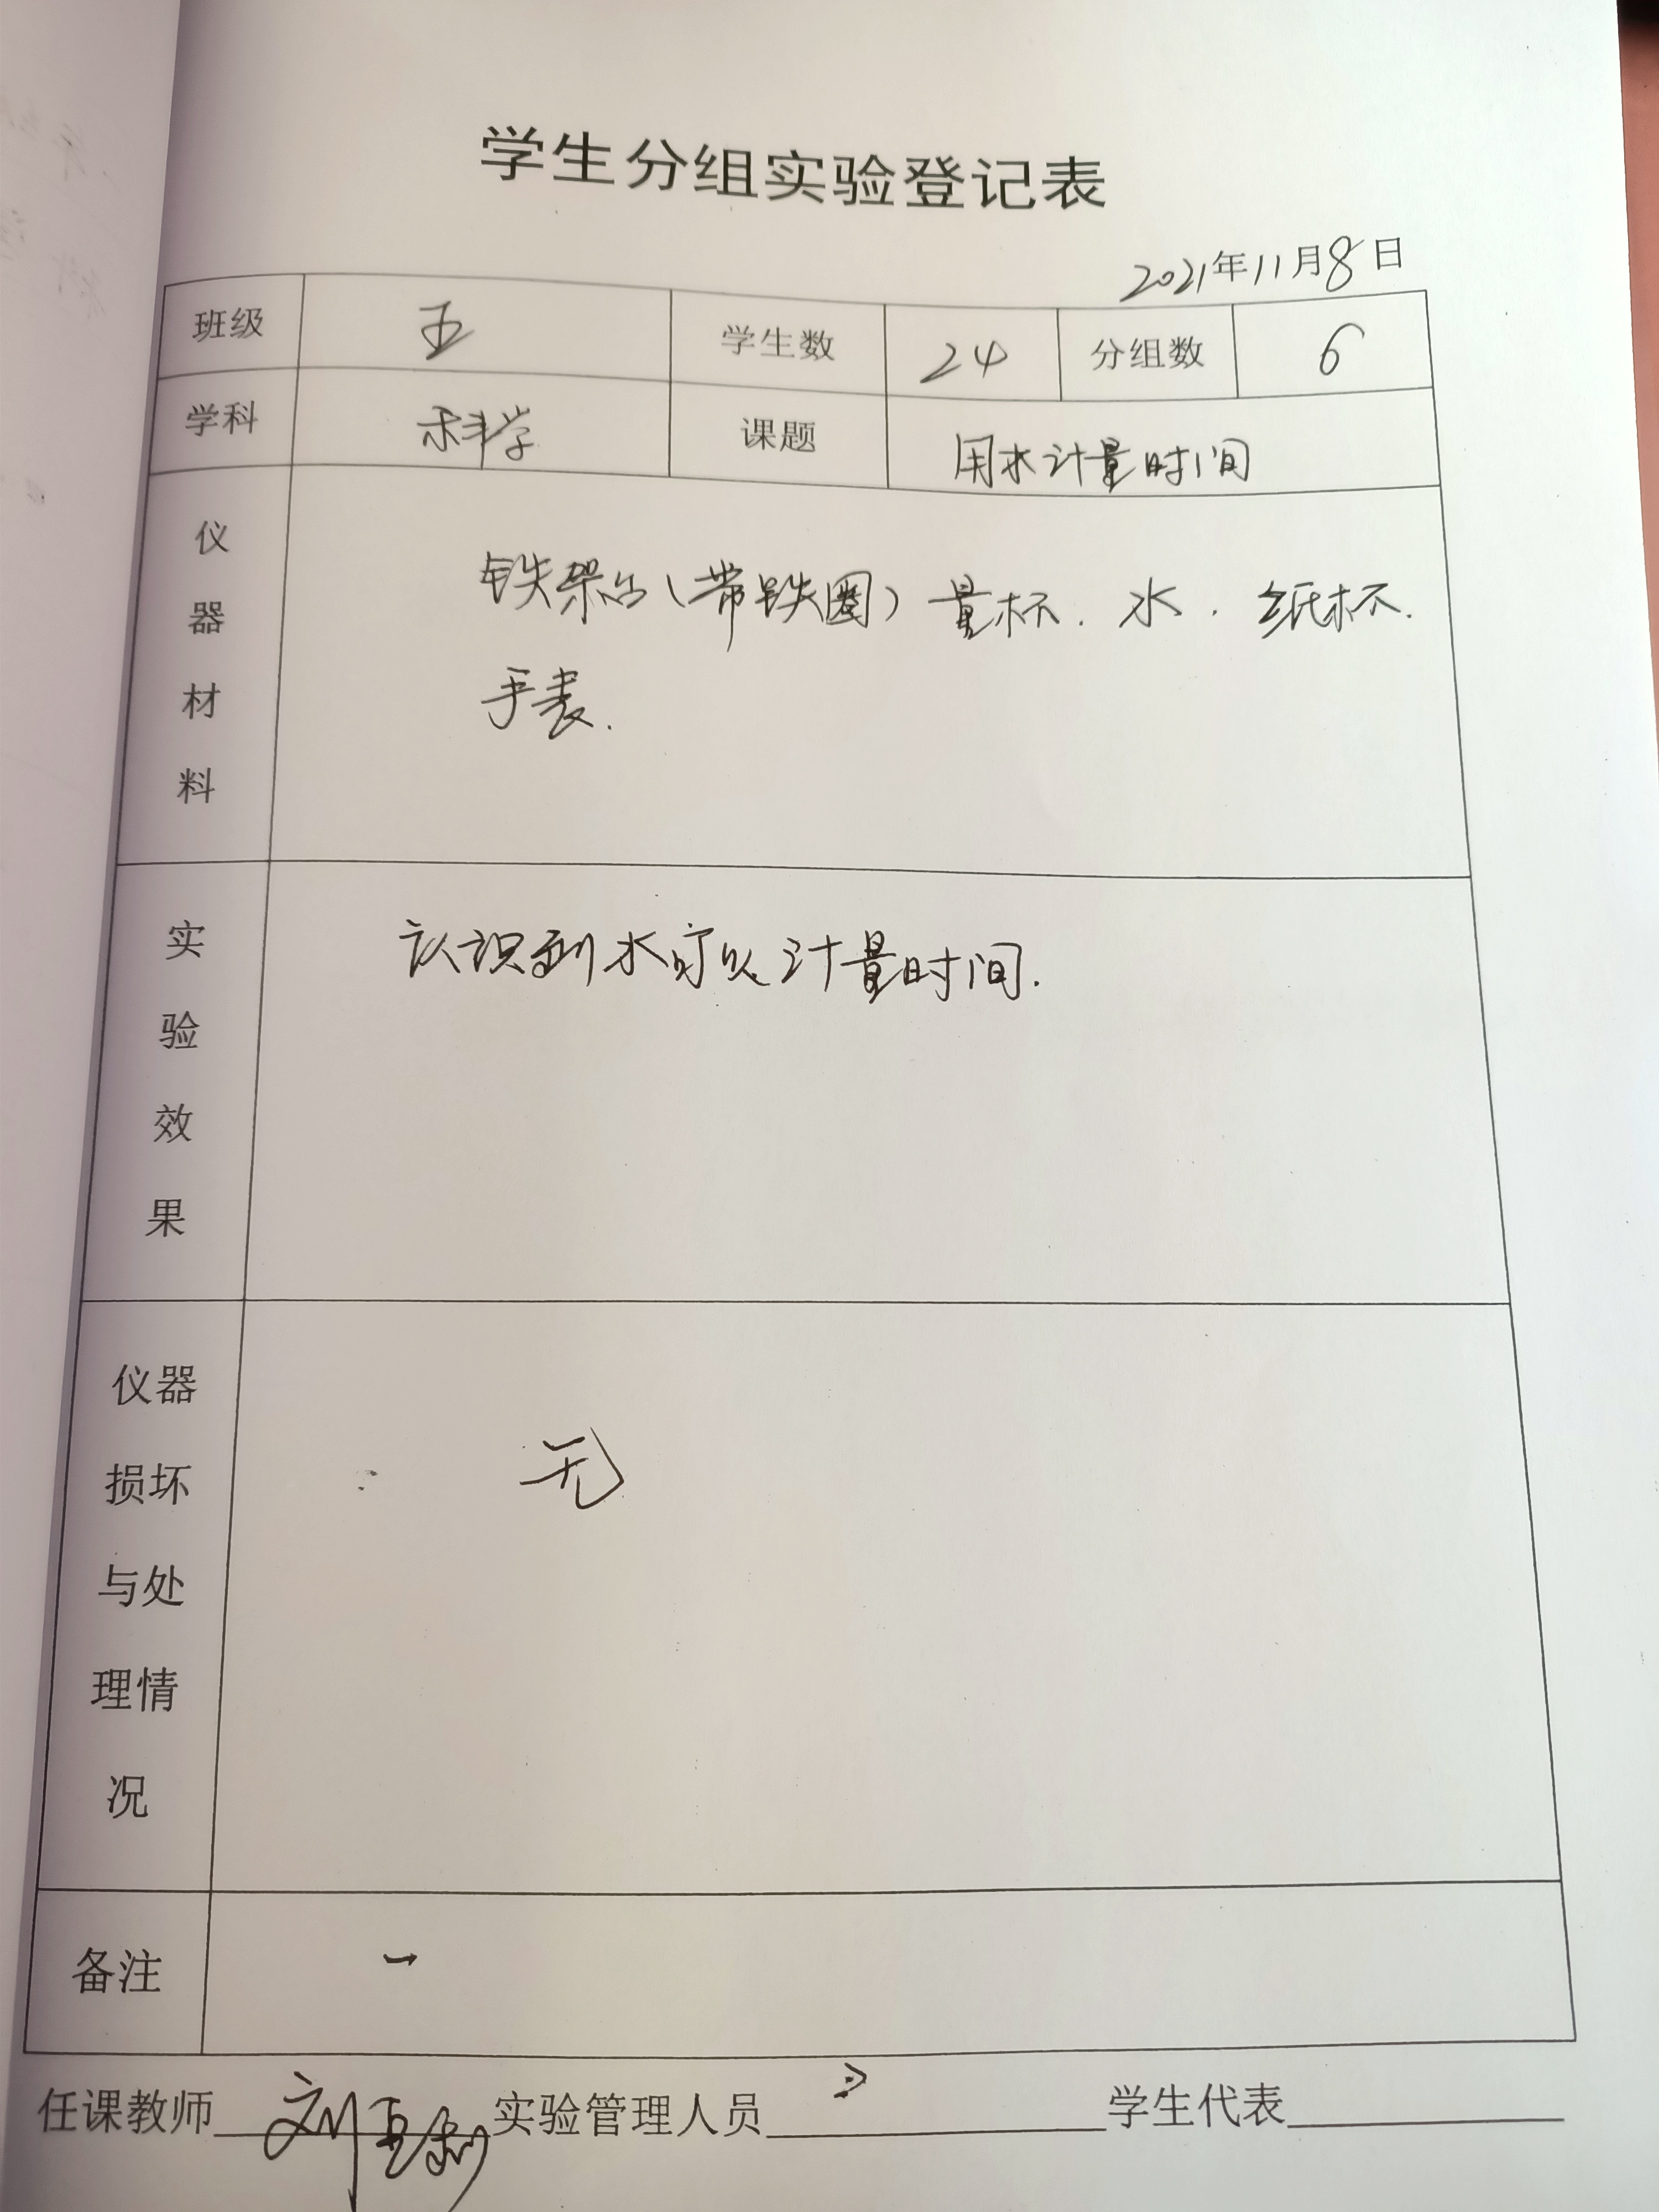 学生分组实验登记表
2021年11月8日
班级 五 学生数 24 分组数 6
学科 科学 课题 用水计量时间
仪器材料
铁架台(带铁圈)量杯.水.纸杯.
手表.
实验效果
认识到水可以计量时间.
仪器
损坏
与处
理情
况
无
备注
任课教师 刘 实验管理人员 学生代表